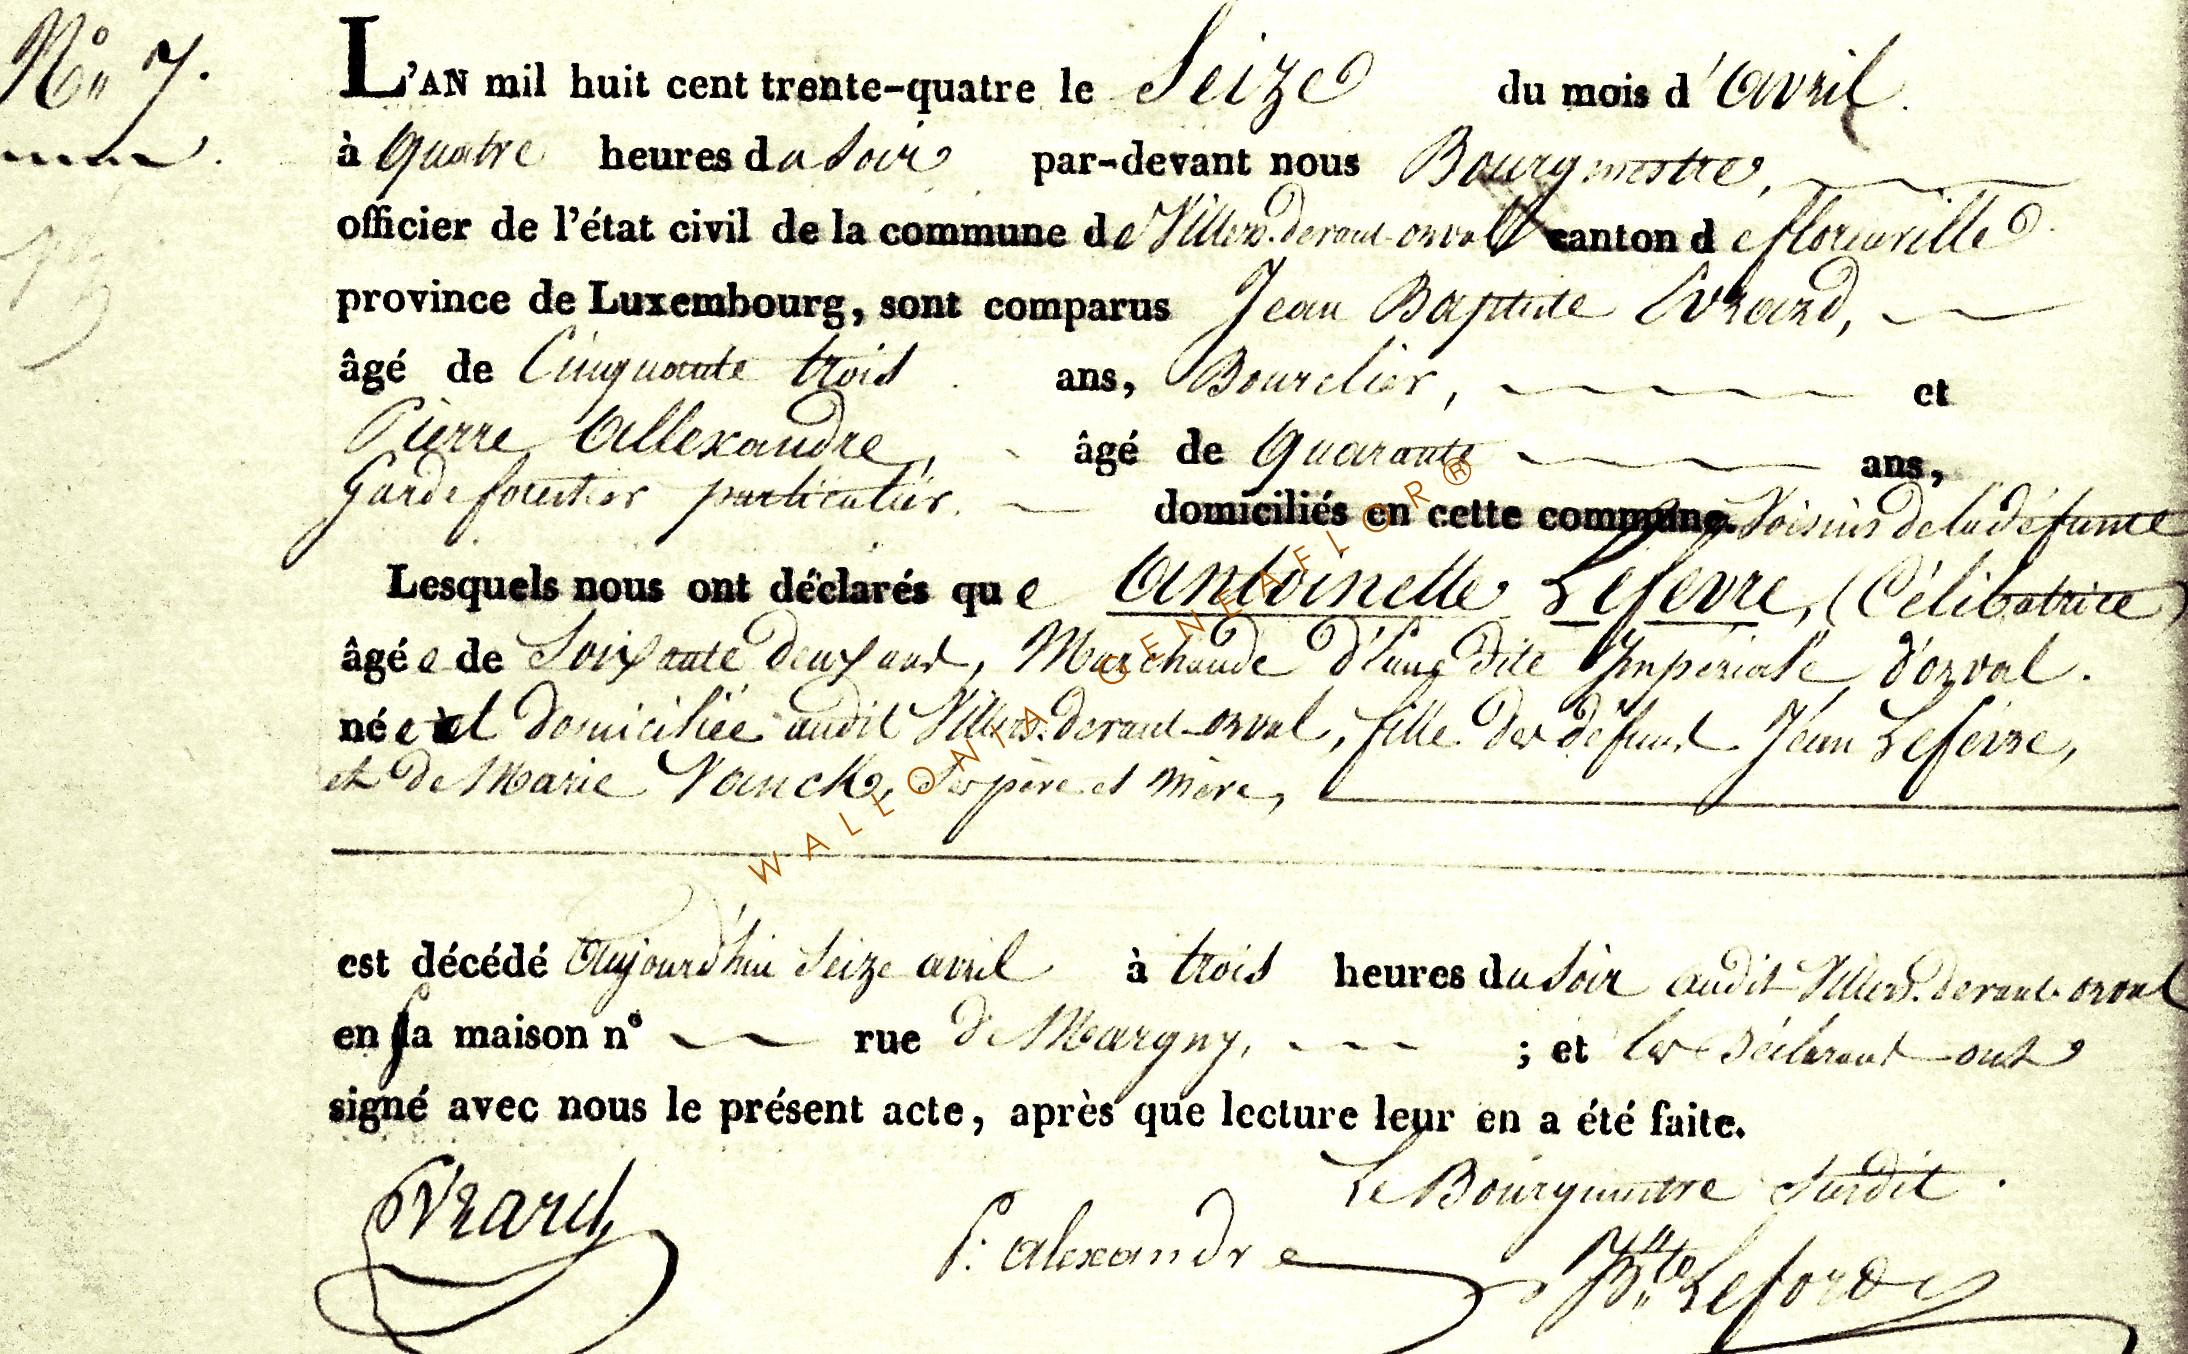 N° 7.
L'AN mil huit cent trente-quatre le Seize du mois d'avril.
à quatre heures du Soir par-devant nous Bourgmestre,
officier de l'état civil de la commune de Villers-devant-orval canton de florenville
province de Luxembourg, sont comparus Jean Baptiste Evrard,
âgé de Cinquante trois ans, Bourelier, et
Pierre Allexandre, âgé de quarante ans,
Garde forestier particulier. domiciliés en cette commune. Voisins de la défunte
Lesquels nous ont déclarés que Antoinette Lefevre, (Célibatrice)
âgée de Soixante deux ans, Marchande d'Eau dite Impériale d'orval.
née et domiciliée audit Villers-devant-orval, fille des défunt Jean Lefèvre,
et de Marie Vanck, Ses père et mère,
est décédé aujourd'hui Seize avril à trois heures du Soir audit Villers-devant-orval
en Sa maison n° rue de Margny, ; et les déclarant ont
signé avec nous le présent acte, après que lecture leur en a été faite.
Le Bourgmestre Susdit.
Evrard P. alexandre
WALLONIA GENEAFLOR®